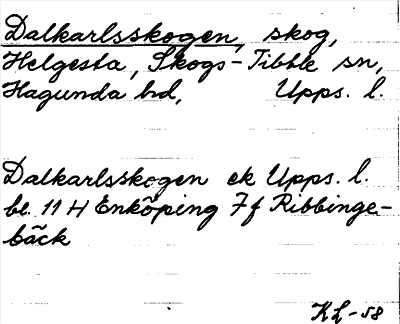 Dalkarlsskogen, skog,
Helgesta, Skogs-Tibble sn,
Hagunda hd, Upps. l.
Dalkarlsskogen ek Upps. l.
bl. 11 H Enköping 7f Ribbinge-
bäck
KL-58